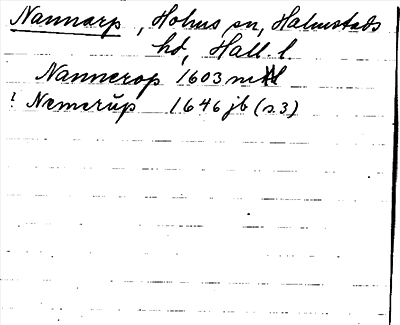 Nannarp, Holms sn, Halmstads
hd, Hall. l.
Nannerop 1603 mtl
? Nemerŭp 1646 jb (n3)